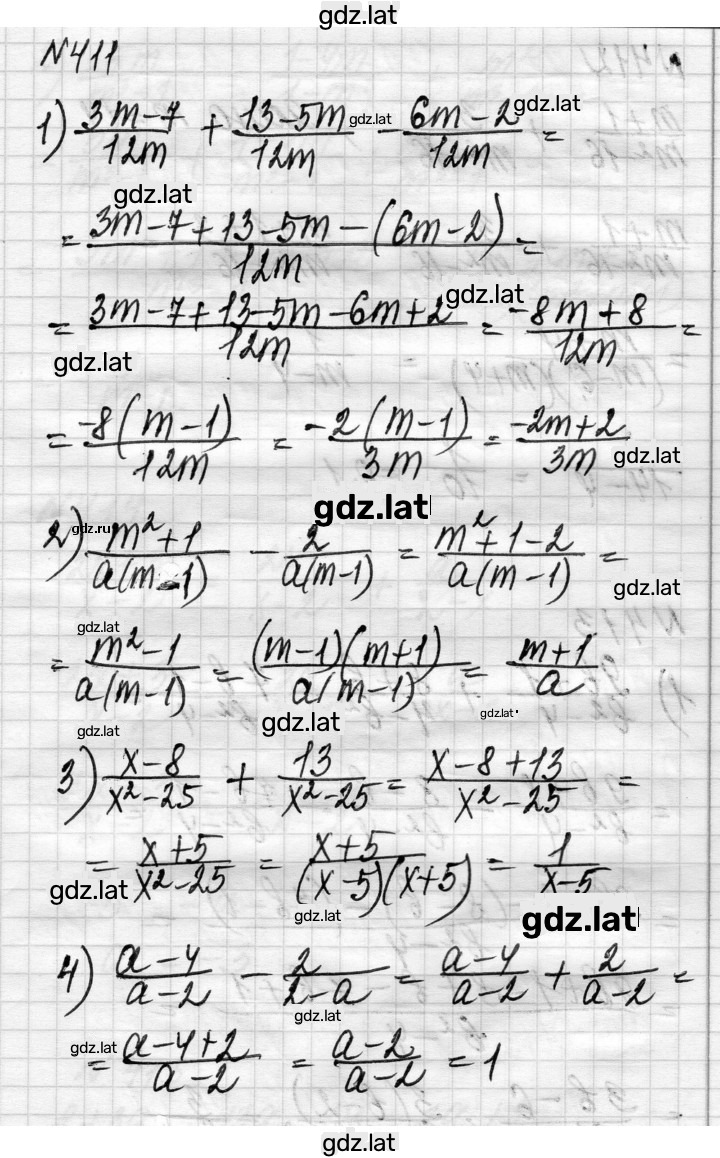 gdz.lat
N411
1) (3m-7)/(12m) + (13-5m)/(12m) - (6m-2)/(12m) = gdz.lat gdz.lat
gdz.lat
= (3m-7+13-5m-(6m-2))/(12m) =
= (3m-7+13-5m-6m+2)/(12m) = (-8m+8)/(12m) = gdz.lat
gdz.lat
= (-8(m-1))/(12m) = (-2(m-1))/(3m) = (-2m+2)/(3m) gdz.lat
gdz.lat
2) (m²+1)/(a(m-1)) - 2/(a(m-1)) = (m²+1-2)/(a(m-1)) = gdz.ru gdz.lat
gdz.lat
= (m²-1)/(a(m-1)) = ((m-1)(m+1))/(a(m-1)) = (m+1)/a
gdz.lat gdz.lat gdz.lat
3) (x-8)/(x²-25) + 13/(x²-25) = (x-8+13)/(x²-25) =
= (x+5)/(x²-25) = (x+5)/((x-5)(x+5)) = 1/(x-5)
gdz.lat gdz.lat gdz.lat
4) (a-4)/(a-2) - 2/(2-a) = (a-4)/(a-2) + 2/(a-2) =
gdz.lat
gdz.lat = (a-4+2)/(a-2) = (a-2)/(a-2) = 1
gdz.lat